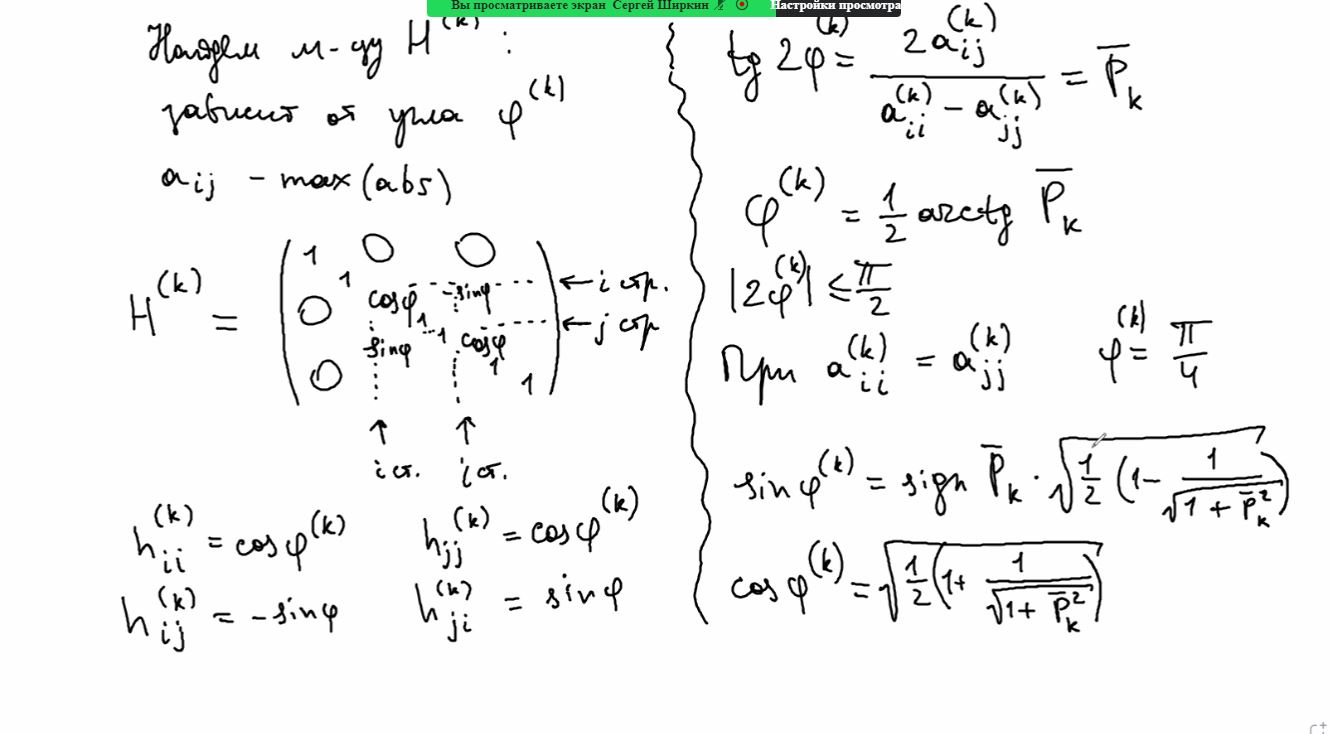 Вы просматриваете экран Сергей Ширкин
Настройки просмотра
Найдем м-цу H^(k) :
зависит от угла φ^(k)
a_ij - max(abs)
H^(k) = ( 1 0 0
1 cosφ -sinφ ← i стр.
0 1 1 ← j стр
sinφ cosφ
0 1 1 )
↑ ↑
i ст. j ст.
h_ii^(k) = cosφ^(k) h_jj^(k) = cosφ^(k)
h_ij^(k) = -sinφ h_ji^(k) = sinφ
tg 2φ^(k) = 2a_ij^(k) / (a_ii^(k) - a_jj^(k)) = P̅_k
φ^(k) = 1/2 arctg P̅_k
|2φ^(k)| ≤ π/2
При a_ii^(k) = a_jj^(k) φ^(k) = π/4
sinφ^(k) = sign P̅_k · √(1/2 (1 - 1/√(1 + P̅_k^2)))
cosφ^(k) = √(1/2 (1 + 1/√(1 + P̅_k^2)))